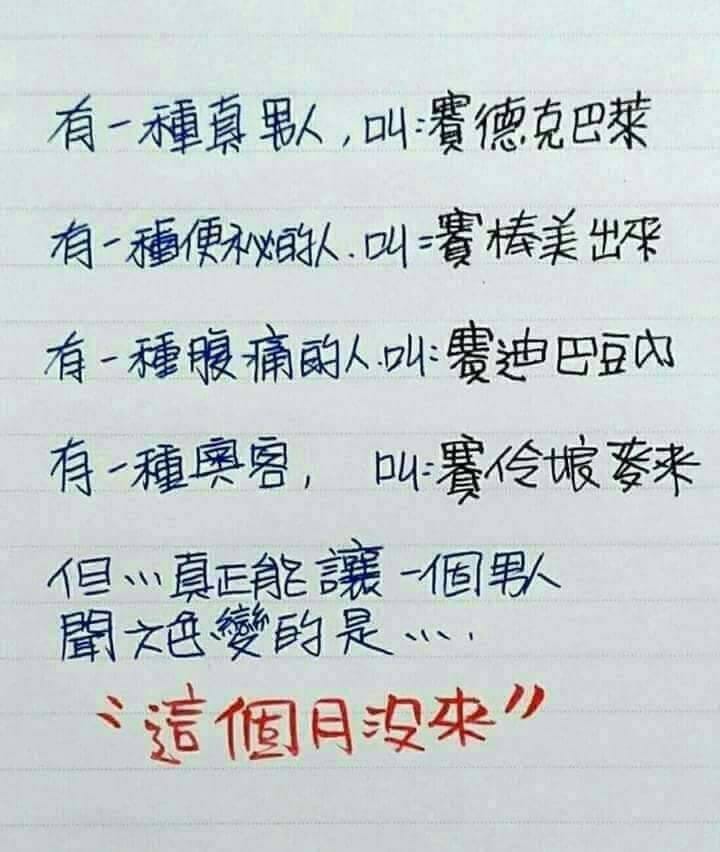 有一種真男人,叫:賽德克巴萊
有一種便祕的人.叫=賽棒美出來
有一種腹痛的人.叫:賽迪巴豆內
有一種奧客, 叫:賽伶娘麥來
但...真正能讓一個男人
聞之色變的是....
"這個月沒來"